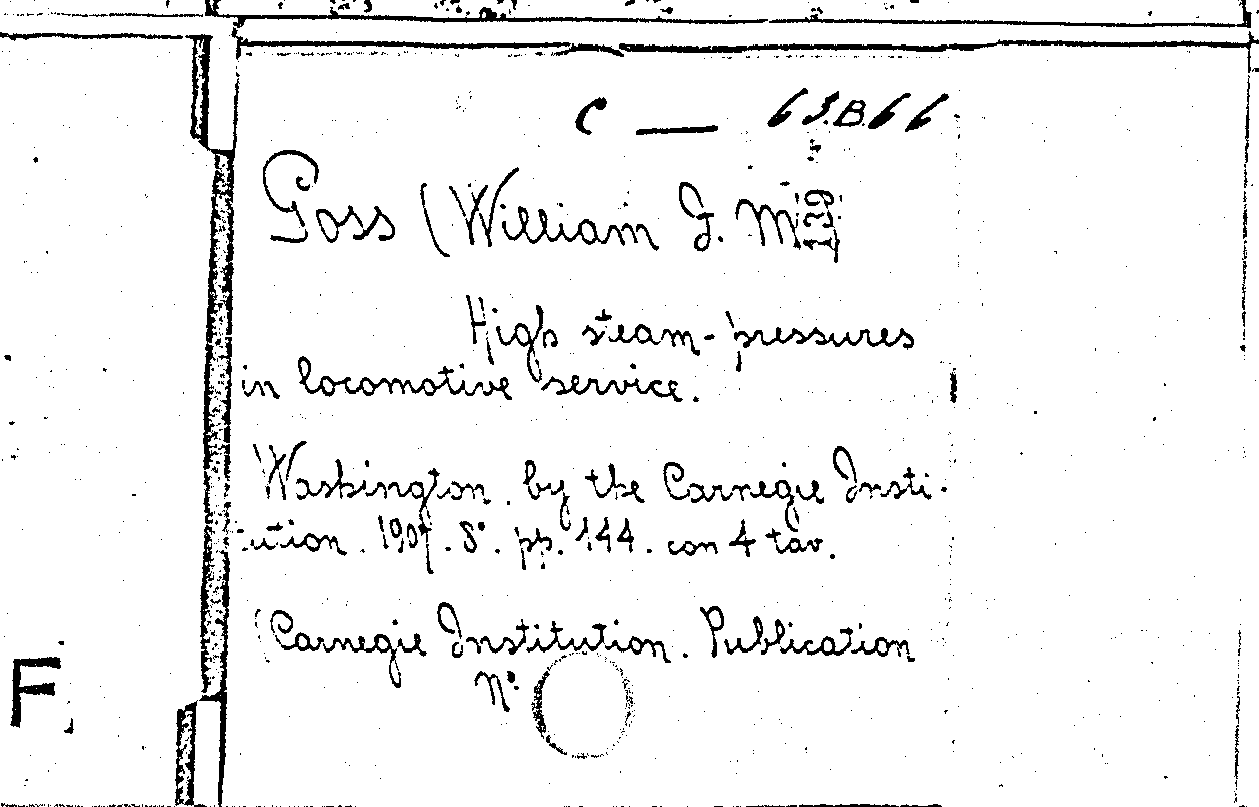 C — 63.B.66
Goss (William F. M.
High steam-pressures
in locomotive service.
Washington. by the Carnegie Insti-
tution. 1907. 8°. pp. 144. con 4 tav.
(Carnegie Institution. Publication
N°.
F